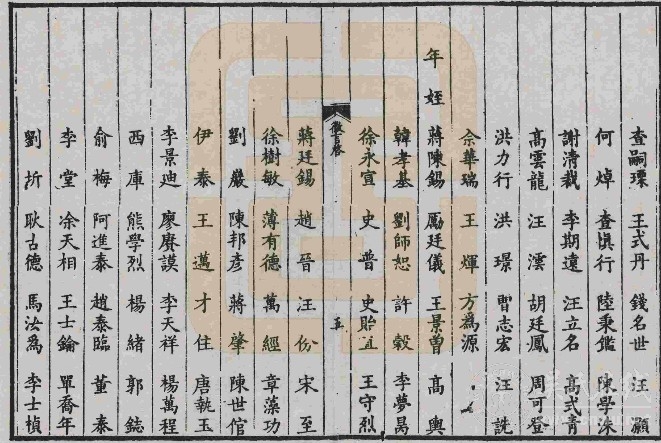 查嗣瑮 王式丹 錢名世 汪灝
何焯 查愼行 陸秉鑑 陳學洙
謝淸栽 李期遠 汪立名 高式靑
高雲龍 汪澐 胡廷鳳 周可登
洪力行 洪璟 曹志宏 汪詵
佘華瑞 王煇 方爲源
年姪 蔣陳錫 勵廷儀 王景曾 高輿
韓孝基 劉師恕 許穀 李夢昺
徐永宣 史普 史貽直 王守烈
徵言啓
五
蔣廷錫 趙晉 汪份 宋至
徐樹敏 薄有德 萬經 章藻功
劉巖 陳邦彥 蔣肇 陳世倌
伊泰 王邁 才住 唐執玉
李景迪 廖賡謨 李天祥 楊萬程
西庫 熊學烈 楊緒 郭鋕
俞梅 阿進泰 趙泰臨 董泰
李堂 凃天相 王士鑰 單喬年
劉圻 耿古德 馬汝爲 李士楨